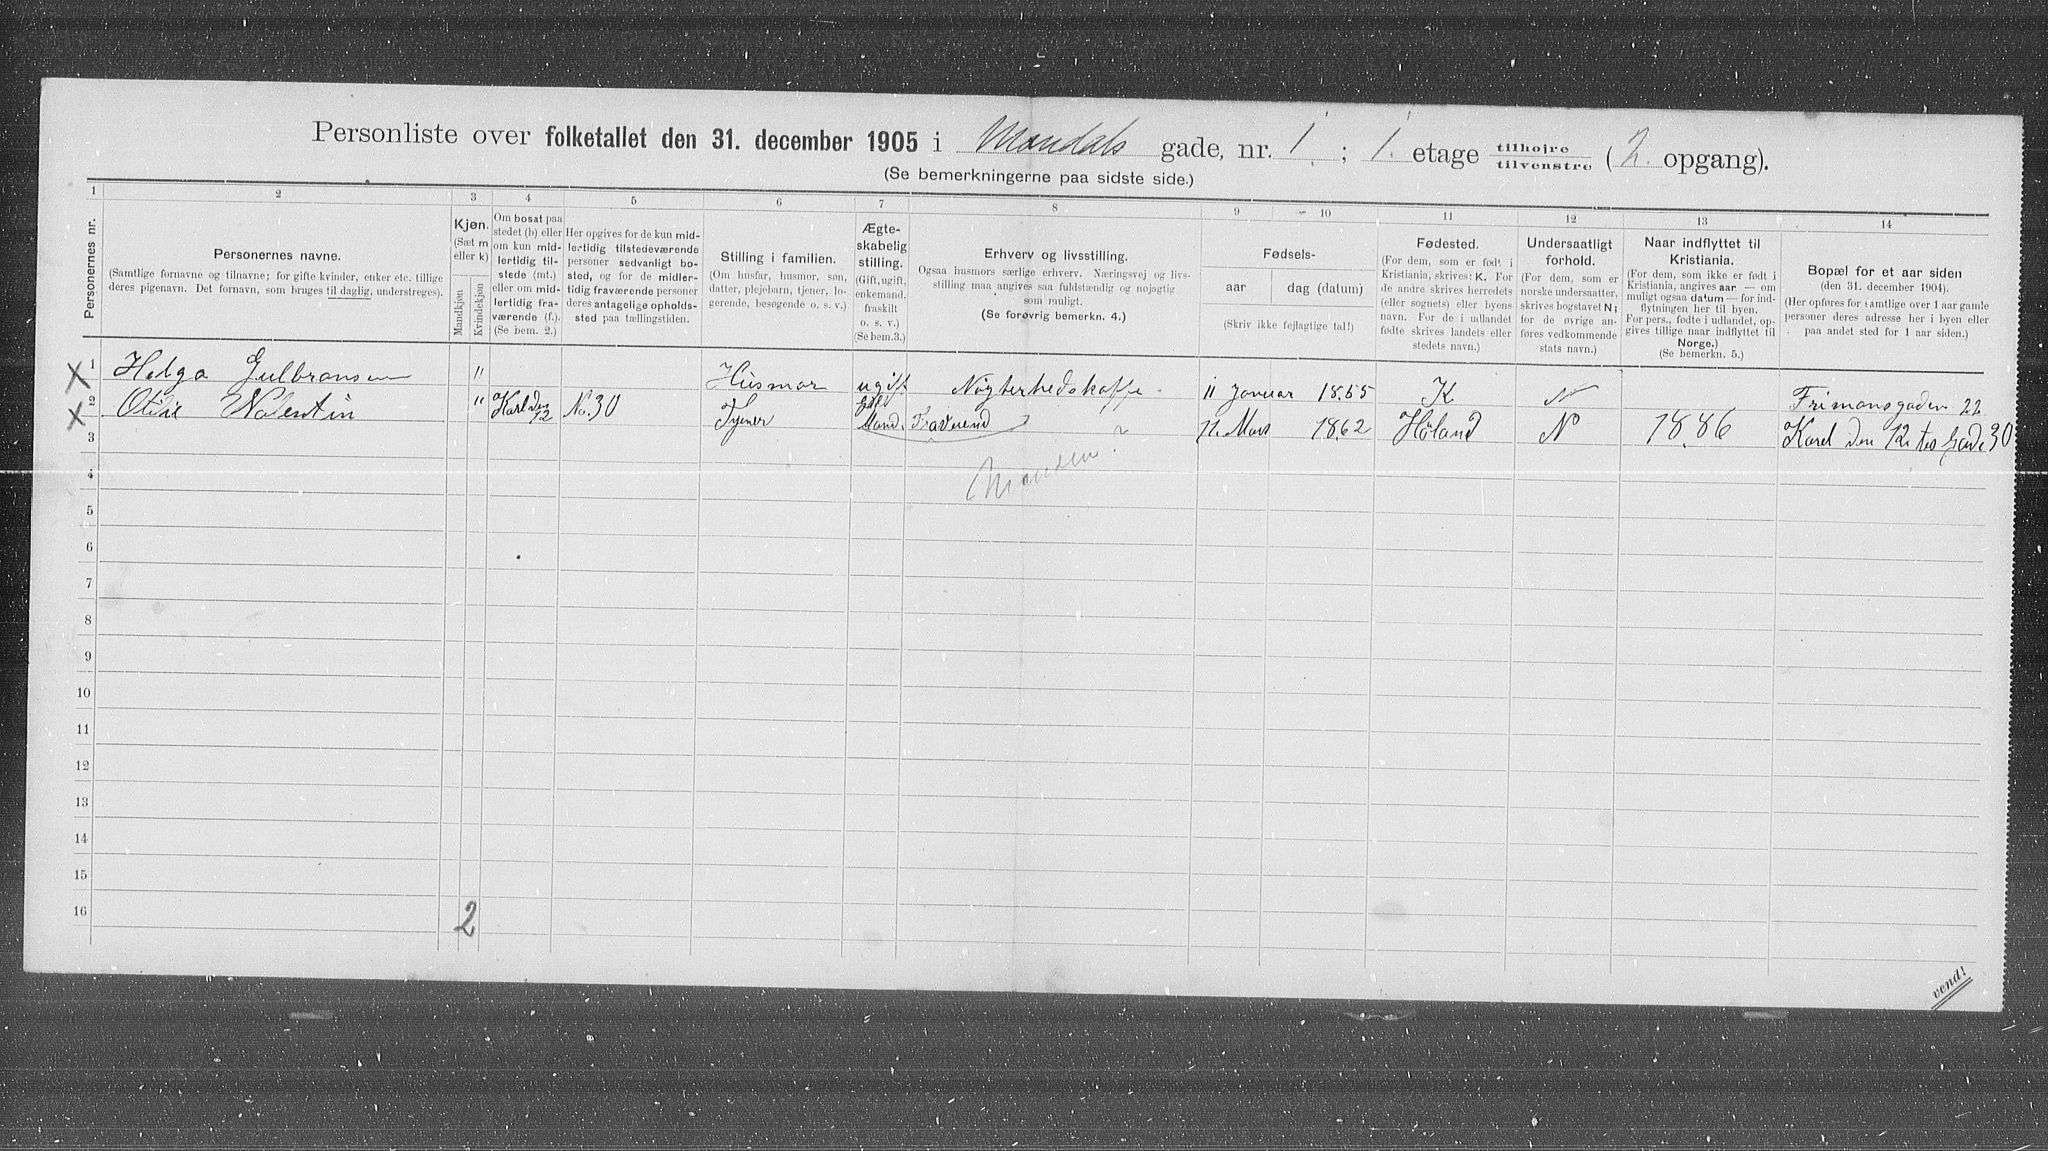 Personliste over folketallet den 31. december 1905 i Mandals gade, nr. 1. ; 1. etage tilhøjre tilvenstre (2. opgang).
(Se bemerkningerne paa sidste side.)
1 2 3 4 5 6 7 8 9 10 11 12 13 14
Personernes nr.
Personernes navne.
(Samtlige fornavne og tilnavne; for gifte kvinder, enker etc. tillige
deres pigenavn. Det fornavn, som bruges til daglig, understreges).
Kjøn.
(Sæt m
eller k)
Mandkjøn
Kvindekjøn
Om bosat paa
stedet (b) eller
om kun mid-
lertidig til-
stede (mt.)
eller om mid-
lertidig fra-
værende (f.).
(Se bem. 2.)
Her opgives for de kun mid-
lertidig tilstedeværende
personer sedvanlig bo-
sted, og for de midler-
tidig fraværende personer
deres antagelige opholds-
sted paa tællingstiden.
Stilling i familien.
(Om husfar, husmor, søn,
datter, plejebarn, tjener, lo-
gerende, besøgende o. s. v.)
Ægte-
skabelig
stilling.
(Gift, ugift,
enkemand,
fraskilt
o. s. v.)
(Se bem.3.)
Erhverv og livsstilling.
Ogsaa husmors særlige erhverv. Næringsvej og livs-
stilling maa angives saa fuldstændig og nøjagtig
som muligt.
(Se forøvrig bemerkn. 4.)
Fødsels-
aar dag (datum)
(Skriv ikke fejlagtige tal!)
Fødested.
(For dem, som er født i
Kristiania, skrives: K. For
de andre skrives herredets
(eller sognets) eller byens
navn. For de i udlandet
fødte skrives landets eller
stedets navn.)
Undersaatligt
forhold.
(For dem, som er
norske undersaatter,
skrives bogstavet N;
for de øvrige an-
føres vedkommende
stats navn.)
Naar indflyttet til
Kristiania.
(For dem, som ikke er født i
Kristiania, angives aar — om
muligt ogsaa datum — for ind-
flytningen her til byen.
For pers., fødte i udlandet, op-
gives tillige naar indflyttet til
Norge.)
(Se bemerkn. 5.)
Bopæl for et aar siden
(den 31. december 1904).
(Her opføres for samtlige over 1 aar gamle
personer deres adresse her i byen eller
paa andet sted for 1 aar siden.)
X 1 Helga Gulbransen " Husmor ugift 11 Januar 1855 K N Frimansgaden 22
X 2 Otilie Valentin " Karl den 12 No. 30 Tjener Mand. Fraverend 11. Mars 1862 Høland N 1886 Karl den 12 tes Gade 30
3
Manden?
4
5
6
7
8
9
10
11
12
13
14
15
16
2
vend!